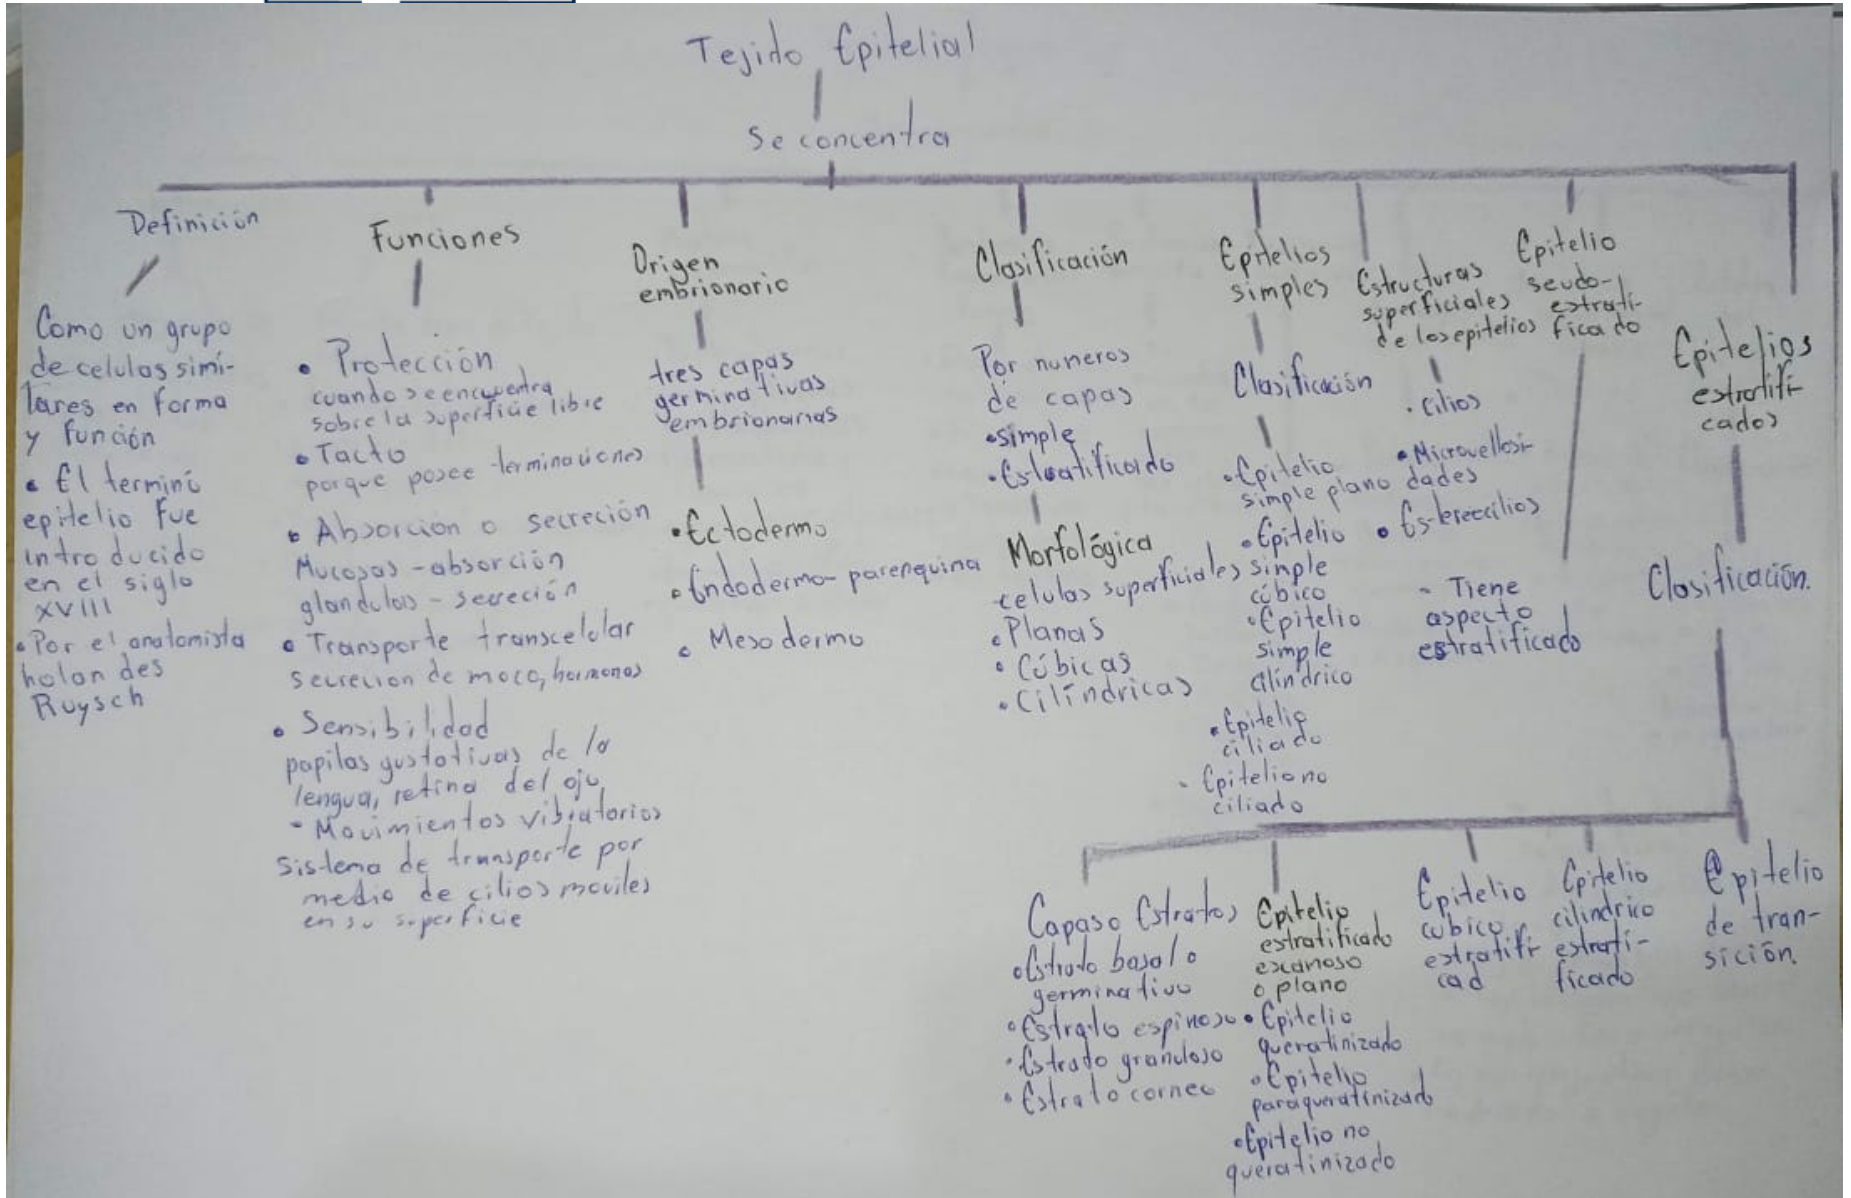 Tejido Epitelial
Se concentra
Definición
Como un grupo
de celulas simi-
lares en forma
y función
• El terminó
epitelio fue
introducido
en el siglo
XVIII
• Por el anatomista
holandes
Ruysch
Funciones
• Protección
cuando se encuentra
sobre la superficie libre
• Tacto
porque posee terminaciones
• Absorción o secreción
Mucosas - absorción
glandulas - secreción
• Transporte transcelular
secrecion de moco, hormonas
• Sensibilidad
papilas gustativas de la
lengua, retina del ojo
- Movimientos vibratorios
sistema de transporte por
medio de cilios moviles
en su superficie
Origen
embrionario
tres capas
germinativas
embrionarias
• Ectodermo
• Endodermo - parenquina
• Mesodermo
Clasificación
Por numeros
de capas
• simple
• Estratificado
Morfológica
celulas superficiales
• Planas
• Cúbicas
• Cilíndricas
Epitelios
simples
Clasificación
• Epitelio
simple plano
• Epitelio
simple
cúbico
• Epitelio
simple
cilíndrico
• Epitelio
ciliado
- Epitelio no
ciliado
Estructuras
superficiales
de los epitelios
• Cilios
• Microvellosi-
dades
• Estereocilios
Epitelio
seudo-
estrati-
ficado
- Tiene
aspecto
estratificado
Epitelios
estratifi-
cados
Clasificación.
Capas o Estratos
• Estrato basal o
germinativo
• Estrato espinoso
• Estrato granuloso
• Estrato corneo
Epitelio
estratificado
escamoso
o plano
• Epitelio
queratinizado
• Epitelio
paraqueratinizado
• Epitelio no
queratinizado
Epitelio
cubico
estratifi-
cad
Epitelio
cilindrico
estrati-
ficado
Epitelio
de tran-
sición.